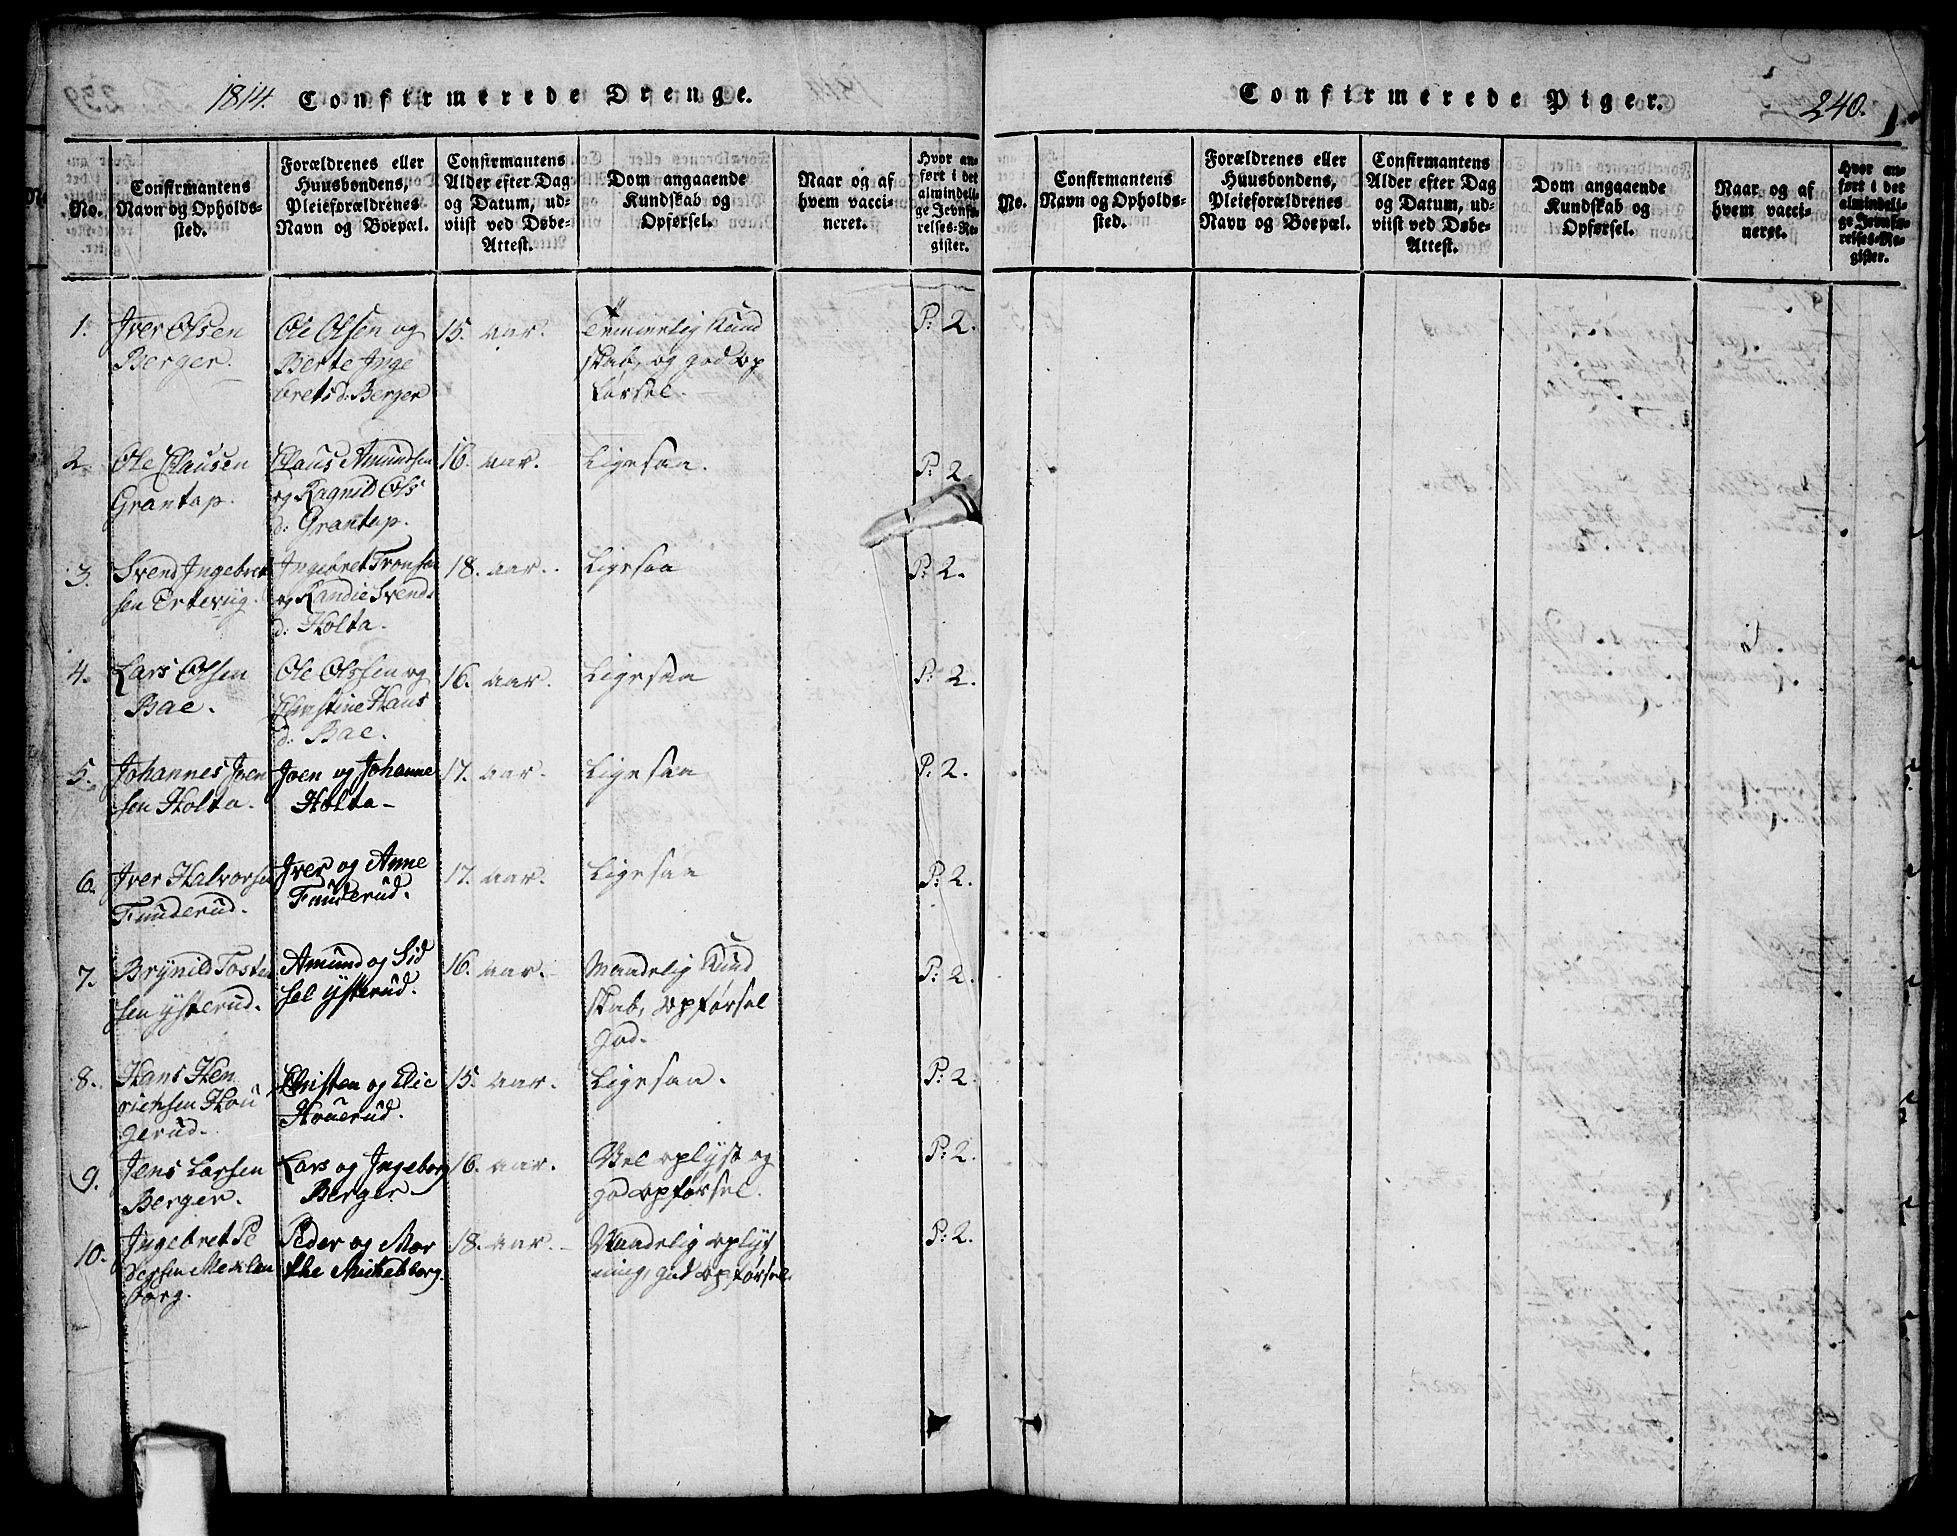 1814. Confirmerede Drenge.
No.
Confirmantens
Navn og Opholds-
sted.
Forældrenes eller
Huusbondens,
Pleieforældrenes
Navn og Boepæl.
Confirmantens
Alder efter Dag
og Datum, ud-
viist ved Døbe-
Attest.
Dom angaaende
Kundskab og
Opførsel.
Naar og af
hvem vacci-
neret.
Hvor an-
ført i det
almindeli-
ge Jevnfø-
relses-Re-
gister.
1. Iver Olsen
Berger.
Ole Olsen og
Berte Inge
bretsd. Berger
15. aar.
Temmelig Kund
skab, og god Op
førsel.
P: 2.
2. Ole Clausen
Grantop.
Claus Amundsen
og Ragnild Ols
d: Grantop.
16. aar.
Ligesaa.
P: 2
3. Svend Ingebret
sen Ertevüg.
Ingebret Tronsen
og Randie Svends
d: Holta.
18. aar.
Ligesaa
P: 2.
4. Lars Olsen
Bae.
Ole Olssen og
Christine Hans
d: Bae.
16. aar.
Ligesaa
P: 2.
5. Johannes Joen
sen Holta.
Joen og Johanne
Holta -
17. aar.
Ligesaa
P: 2.
6. Iver Halvorsen
Funderud.
Iver og Anne
Funderud.
17. aar.
Ligesaa
P: 2.
7. Brynild Tosten
sen Ysterud.
Amund og Sid
sel Ysterud.
16. aar.
Maadelig Kund
skab, opførsel
god.
P: 2.
8. Hans Hen
richsen Hou
gerud.
Christen og Elie
Houerud.
15. aar.
Ligesaa.
P: 2
9. Jens Larsen
Berger.
Lars og Ingeborg
Berger
16. aar.
Vel oplyst og
god opførsel.
P: 2.
10. Ingebret Pe
dersen Meklen
borg.
Peder og Mar
the Mickelborg.
18. aar.
Maadelig oplys
ning, god opførsel.
P: 2.
Confirmerede Piger. 240.
No.
Confirmantens
Navn og Opholds-
sted.
Forældrenes eller
Huusbondens,
Pleieforældrenes
Navn og Boepæl.
Confirmantens
Alder efter Dag
og Datum, ud-
viist ved Døbe-
Attest.
Dom angaaende
Kundskab og
Opførsel.
Naar og af
hvem vacci-
neret.
Hvor an-
ført i det
almindeli-
ge Jevnfø-
relses-Re-
gister.